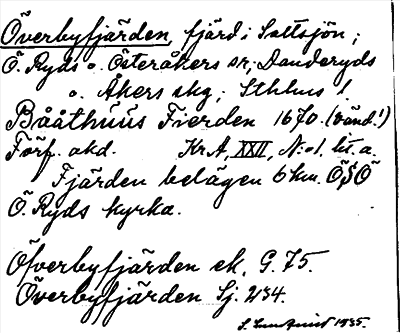 Överbyfjärden, fjärd i Saltsjön;
Ö. Ryds o. Österåkers sr; Danderyds
o. Åkers skg; Sthlms l.
Bååthuus Fierden 1670. (vänd!)
Förf. okd. Kr A, XXII, N:o 1. lit. a.
Fjärden belägen 6 km. ÖSÖ
Ö. Ryds kyrka.
Öfverbyfjärden ek. G. 75.
Överbyfjärden Sj. 234.
S. Lundqvist 1935.